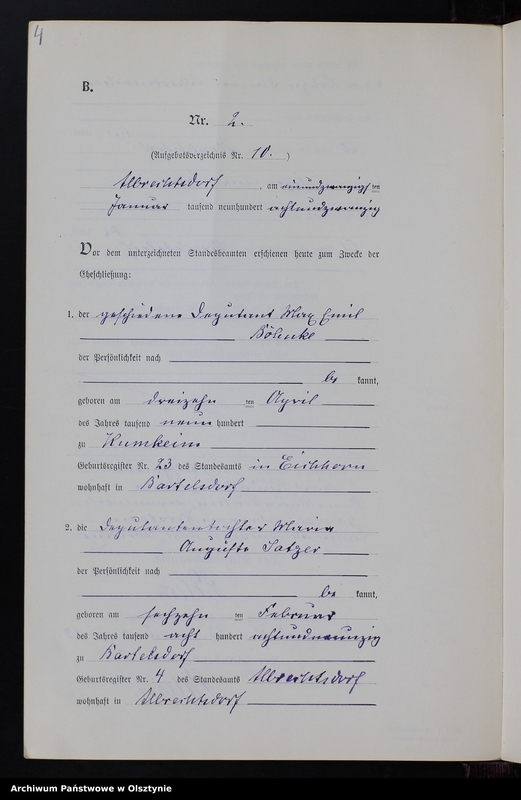 4
B.
Nr. 2.
(Aufgebotsverzeichnis Nr. 10. )
Albrechtsdorf , am einundzwanzigsten
Januar tausend neunhundert achtundzwanzig
Vor dem unterzeichneten Standesbeamten erschienen heute zum Zwecke der
Eheschließung:
1. der geschiedene Deputant Max Emil
Böhnke
der Persönlichkeit nach
be kannt,
geboren am dreizehn ten April
des Jahres tausend neun hundert
zu Kumkeim
Geburtsregister Nr. 23 des Standesamts in Eichhorn
wohnhaft in Bartelsdorf
2. die Deputantentochter Maria
Auguste Tatzer
der Persönlichkeit nach
be kannt,
geboren am sechzehn ten Februar
des Jahres tausend acht hundert achtundneunzig
zu Bartelsdorf
Geburtsregister Nr. 4 des Standesamts Albrechtsdorf
wohnhaft in Albrechtsdorf
Archiwum Państwowe w Olsztynie